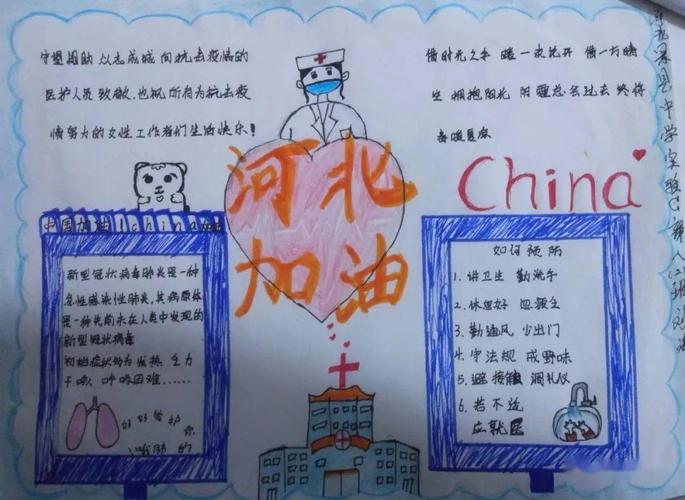 守望相助 众志成城 向抗击疫情的
医护人员致敬，也祝所有为抗击疫
情努力的女性工作者们生活快乐！
借时光之手 暖一次花开 借一方晴
空 拥抱阳光 阴霾总会过去 终将
春暖复苏
河北
加油
China
中国加油！china加油
新型冠状病毒肺炎是一种
急性感染性肺炎，其病原体
是一种先前未在人类中发现的
新型冠状病毒
初始症状多为发热 乏力
干咳 呼吸困难……
好好爱护你
的
如何预防
1. 讲卫生 勤洗手
2. 休息好
3. 勤通风 少出门
4. 守法规 戒野味
5. 避接触 润礼仪
6. 若不适
应就医
县中学实验